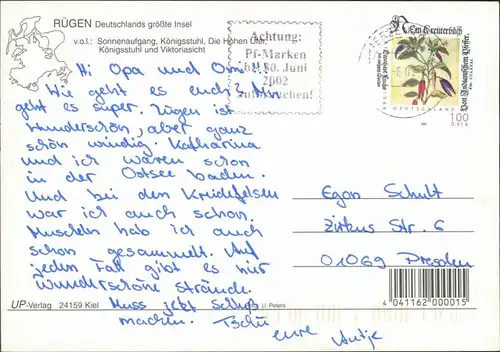 RÜGEN Deutschlands größte Insel
v.o.l.: Sonnenaufgang, Königsstuhl, Die Hohen Ufer,
Königsstuhl und Viktoriasicht
Hi Opa und Omi!!!
Wie geht es euch? Mir
geht es super. Rügen ist
wunderschön, aber ganz
schön windig. Katharina
und ich waren schon
in der Ostsee baden.
Und bei den Kreidefelsen
war ich auch schon.
Muscheln hab ich auch
schon gesammelt. Auf
jeden Fall gibt es hier
wunderschöne Strände.
Muss jetzt Schluß
machen. Tschü
eure Antje
UP-Verlag 24159 Kiel
U. Peters
Achtung:
Pf-Marken
bis 30. Juni
2002
aufbrauchen!
DEUTSCHLAND
100
0,51 €
Egon Schult
Zirkus Str. 6
01069 Dresden
4 041162 000015